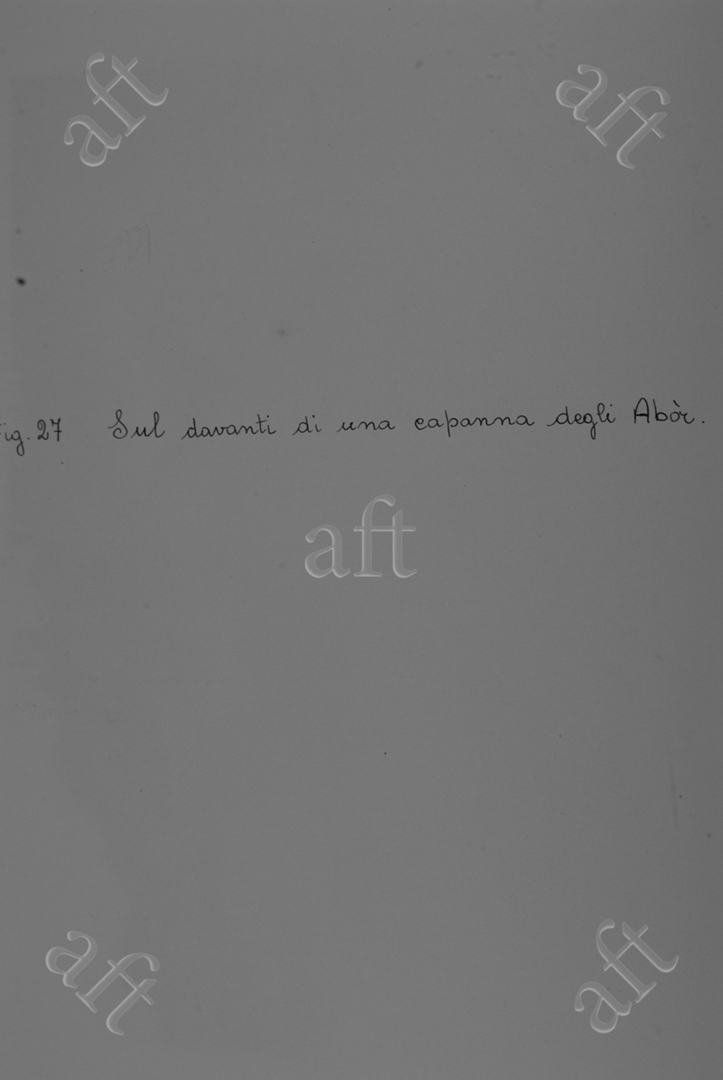 aft
aft
ig. 27 Sul davanti di una capanna degli Abòr.
aft
aft
aft